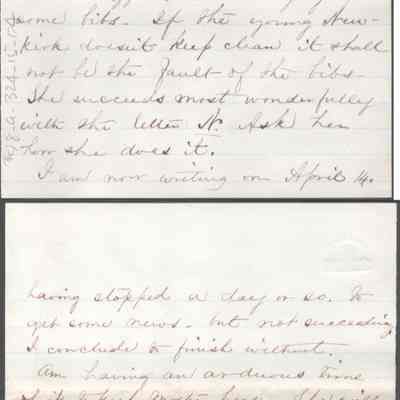 some bibs. If the young New-
kirk doesn't keep clean it shall
not be the fault of the bibs.
She succeeds most wonderfully
with the letter N. Ask her
how she does it.
I am now writing on April 14.
having stopped a day or so. to
get some news. but not succeeding
I conclude to finish without.
Am having an arduous time